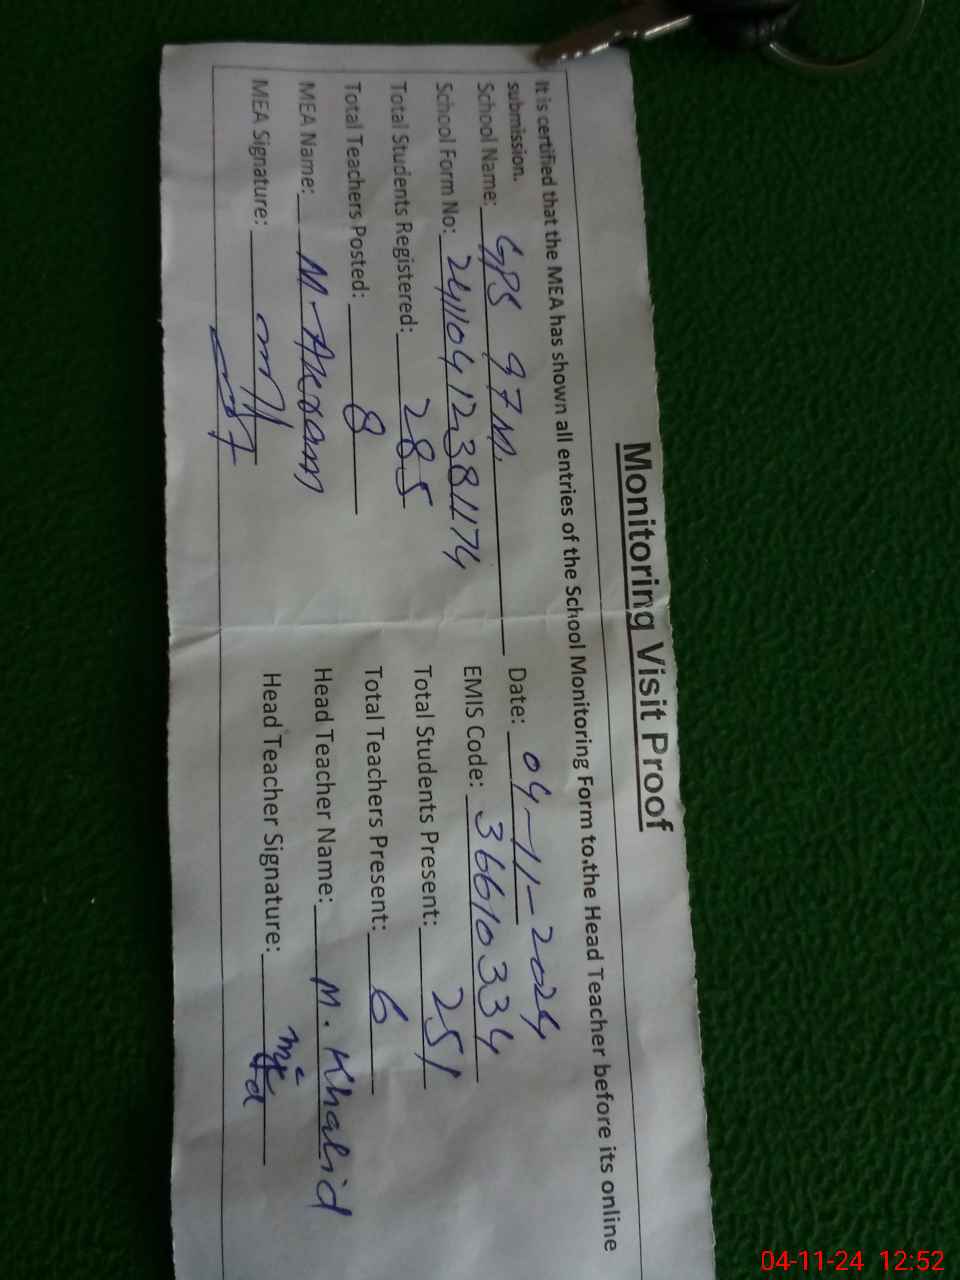 Monitoring Visit Proof
It is certified that the MEA has shown all entries of the School Monitoring Form to the Head Teacher before its online
submission.
School Name: GPS 97M. Date: 04-11-2024
School Form No: 24110412381174 EMIS Code: 36610334
Total Students Registered: 285 Total Students Present: 251
Total Teachers Posted: 8 Total Teachers Present: 6
MEA Name: M. Akram Head Teacher Name: M. Khalid
MEA Signature: Head Teacher Signature:
04-11-24 12:52